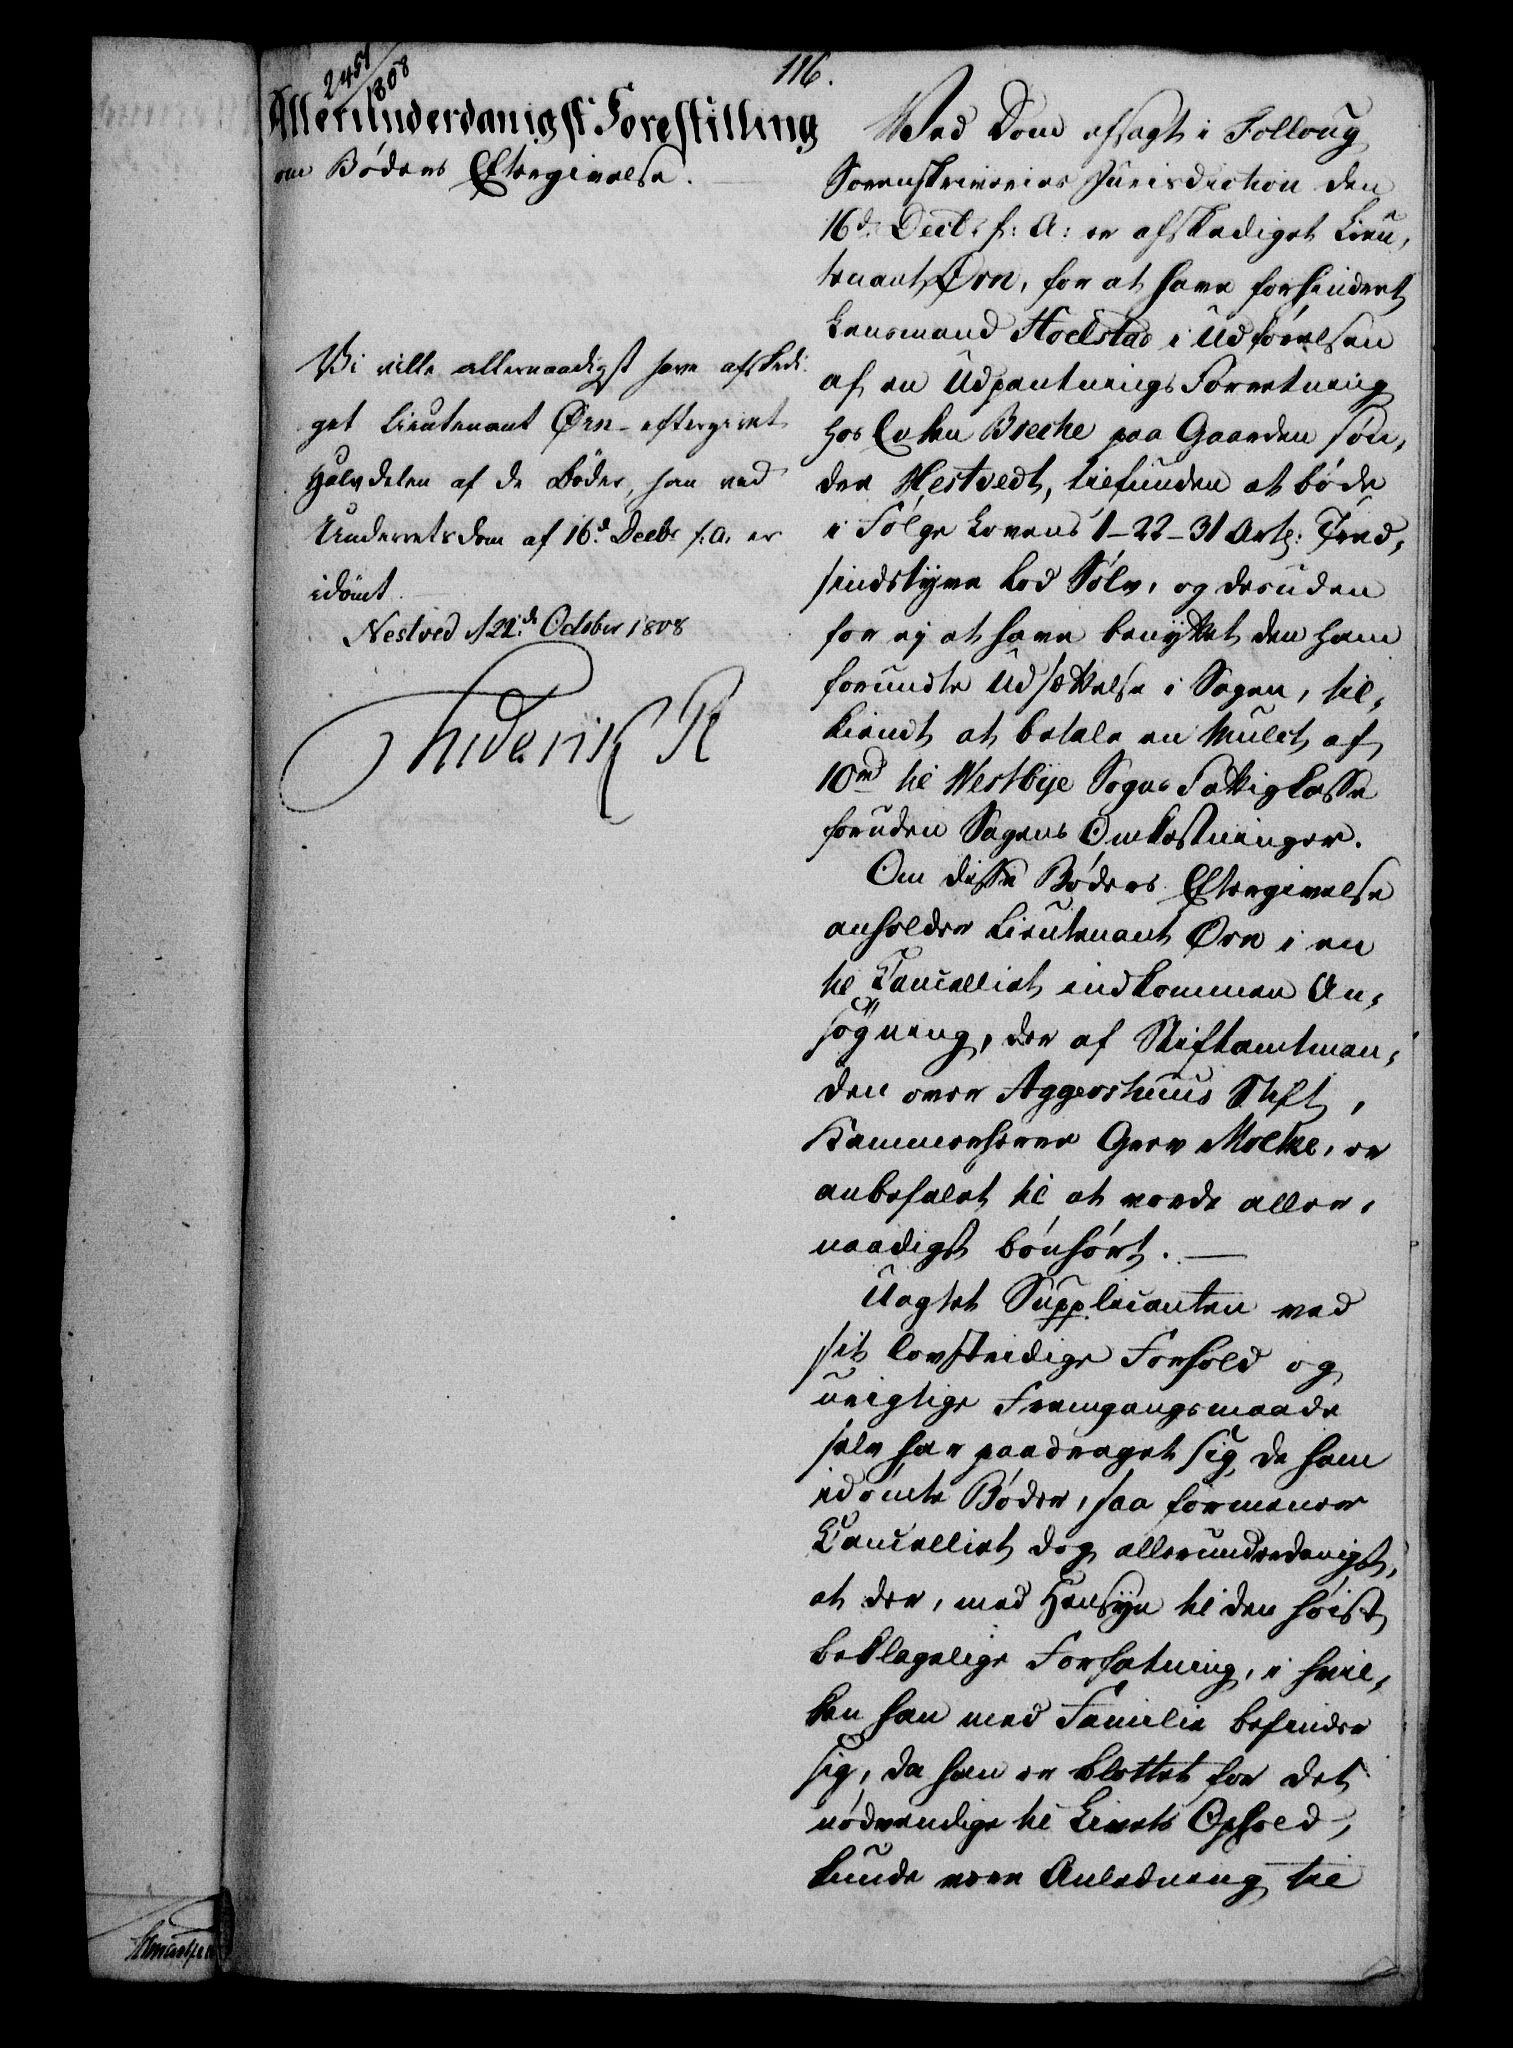 2451/1808
116.
Allerunderdanigst Forestilling
om Bøders Eftergivelse.
Vi ville allernaadigst have afskedi-
get Lieutenant Ørn eftergivet
Halvdelen af de Bøder, han ved
Underrets dom af 16d Decbr f: A: er
idømt.
Nestved d 22de October 1808
Frederik R
Ved Dom afsagt i Folloug
Sorenskriveries Jurisdiction den
16de Decbr f: A: er afskediget Lieu-
tenant Ørn, for at have forhindret
Lensmand Hoelstad i Udførelsen
af en Udpantnings Forretning
hos Enken Beche paa Gaarden søn-
dre Westvedt, tilfunden at bøde
i Følge Lovens 1-22-31 Art: Tred-
sindstyve Lod Sølv, og desuden
for ej at have benyttet den ham
forundte Udsættelse i Sagen, til-
kiendt at betale en Mulct af
10rd til Westbye Sogns Fattigkasse
foruden Sagens Omkostninger.
Om disse Bøders Eftergivelse
anholder Lieutenant Ørn i en
til Cancelliet indkommen An-
søgning, der af Stiftamtman-
den over Aggershuus Stift,
Kammerherre Grev Moltke, er
anbefalet til at vorde aller-
naadigst bønhørt. —
Uagtet Supplicanten ved
sit lovstridige Forhold og
urigtige Fremgangsmaade
selv har paadraget sig de ham
idømte Bøder, saa formener
Cancelliet dog allerunderdanigst,
at der, med Hensyn til den høist
beklagelige Forfatning, i hvil-
ken han med Familie befinder
sig, da han er blottet for det
nødvendige til Livets Ophold,
kunde være Anledning til